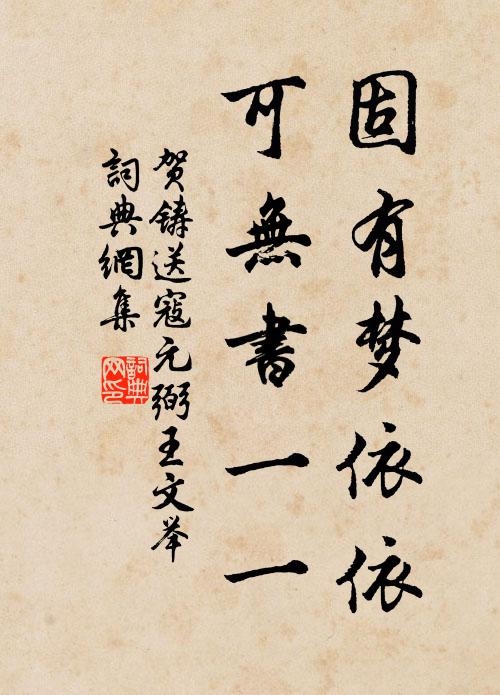 固有梦依依
可無書一一
贺鑄送寇元弼王文举
詞典網集
詞典网印